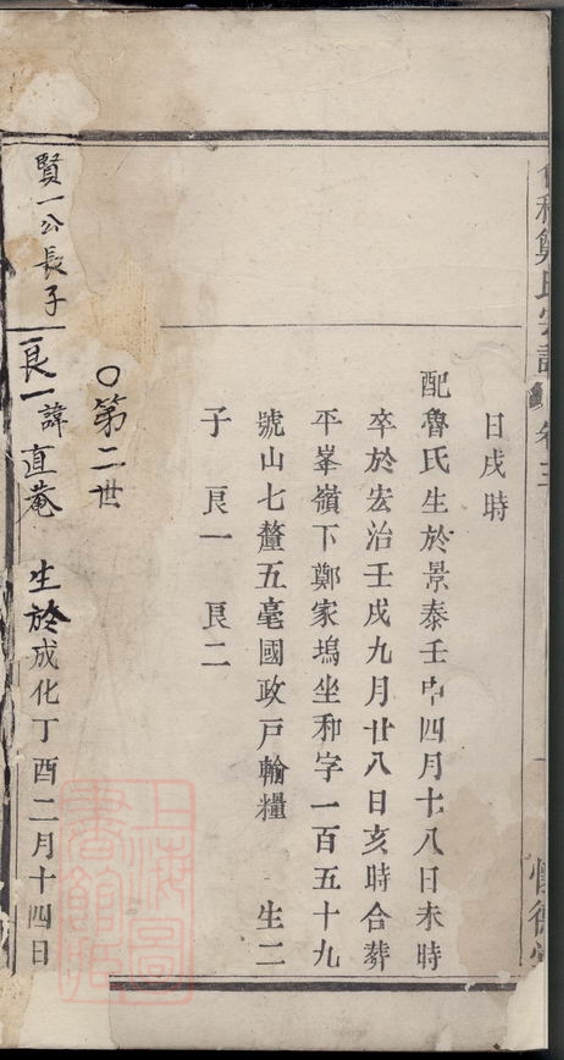 鄭氏宗譜
卷三
日戌時
配魯氏生於景泰壬申四月十八日未時
卒於宏治壬戌九月廿八日亥時合葬
平峯嶺下鄭家塢坐和字一百五十九
號山七釐五毫國政戶輸糧 生二
子 良一 良二
○第二世
賢一公長子
良一諱直菴 生於成化丁酉二月十四日
上海圖書館藏